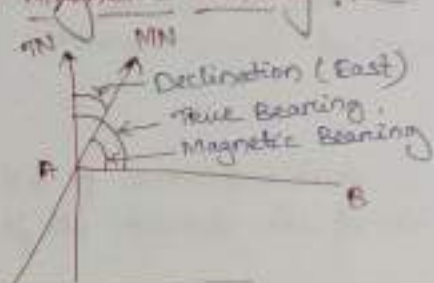 TN
MN
Declination (East)
True Bearing.
Magnetic Bearing
A
B